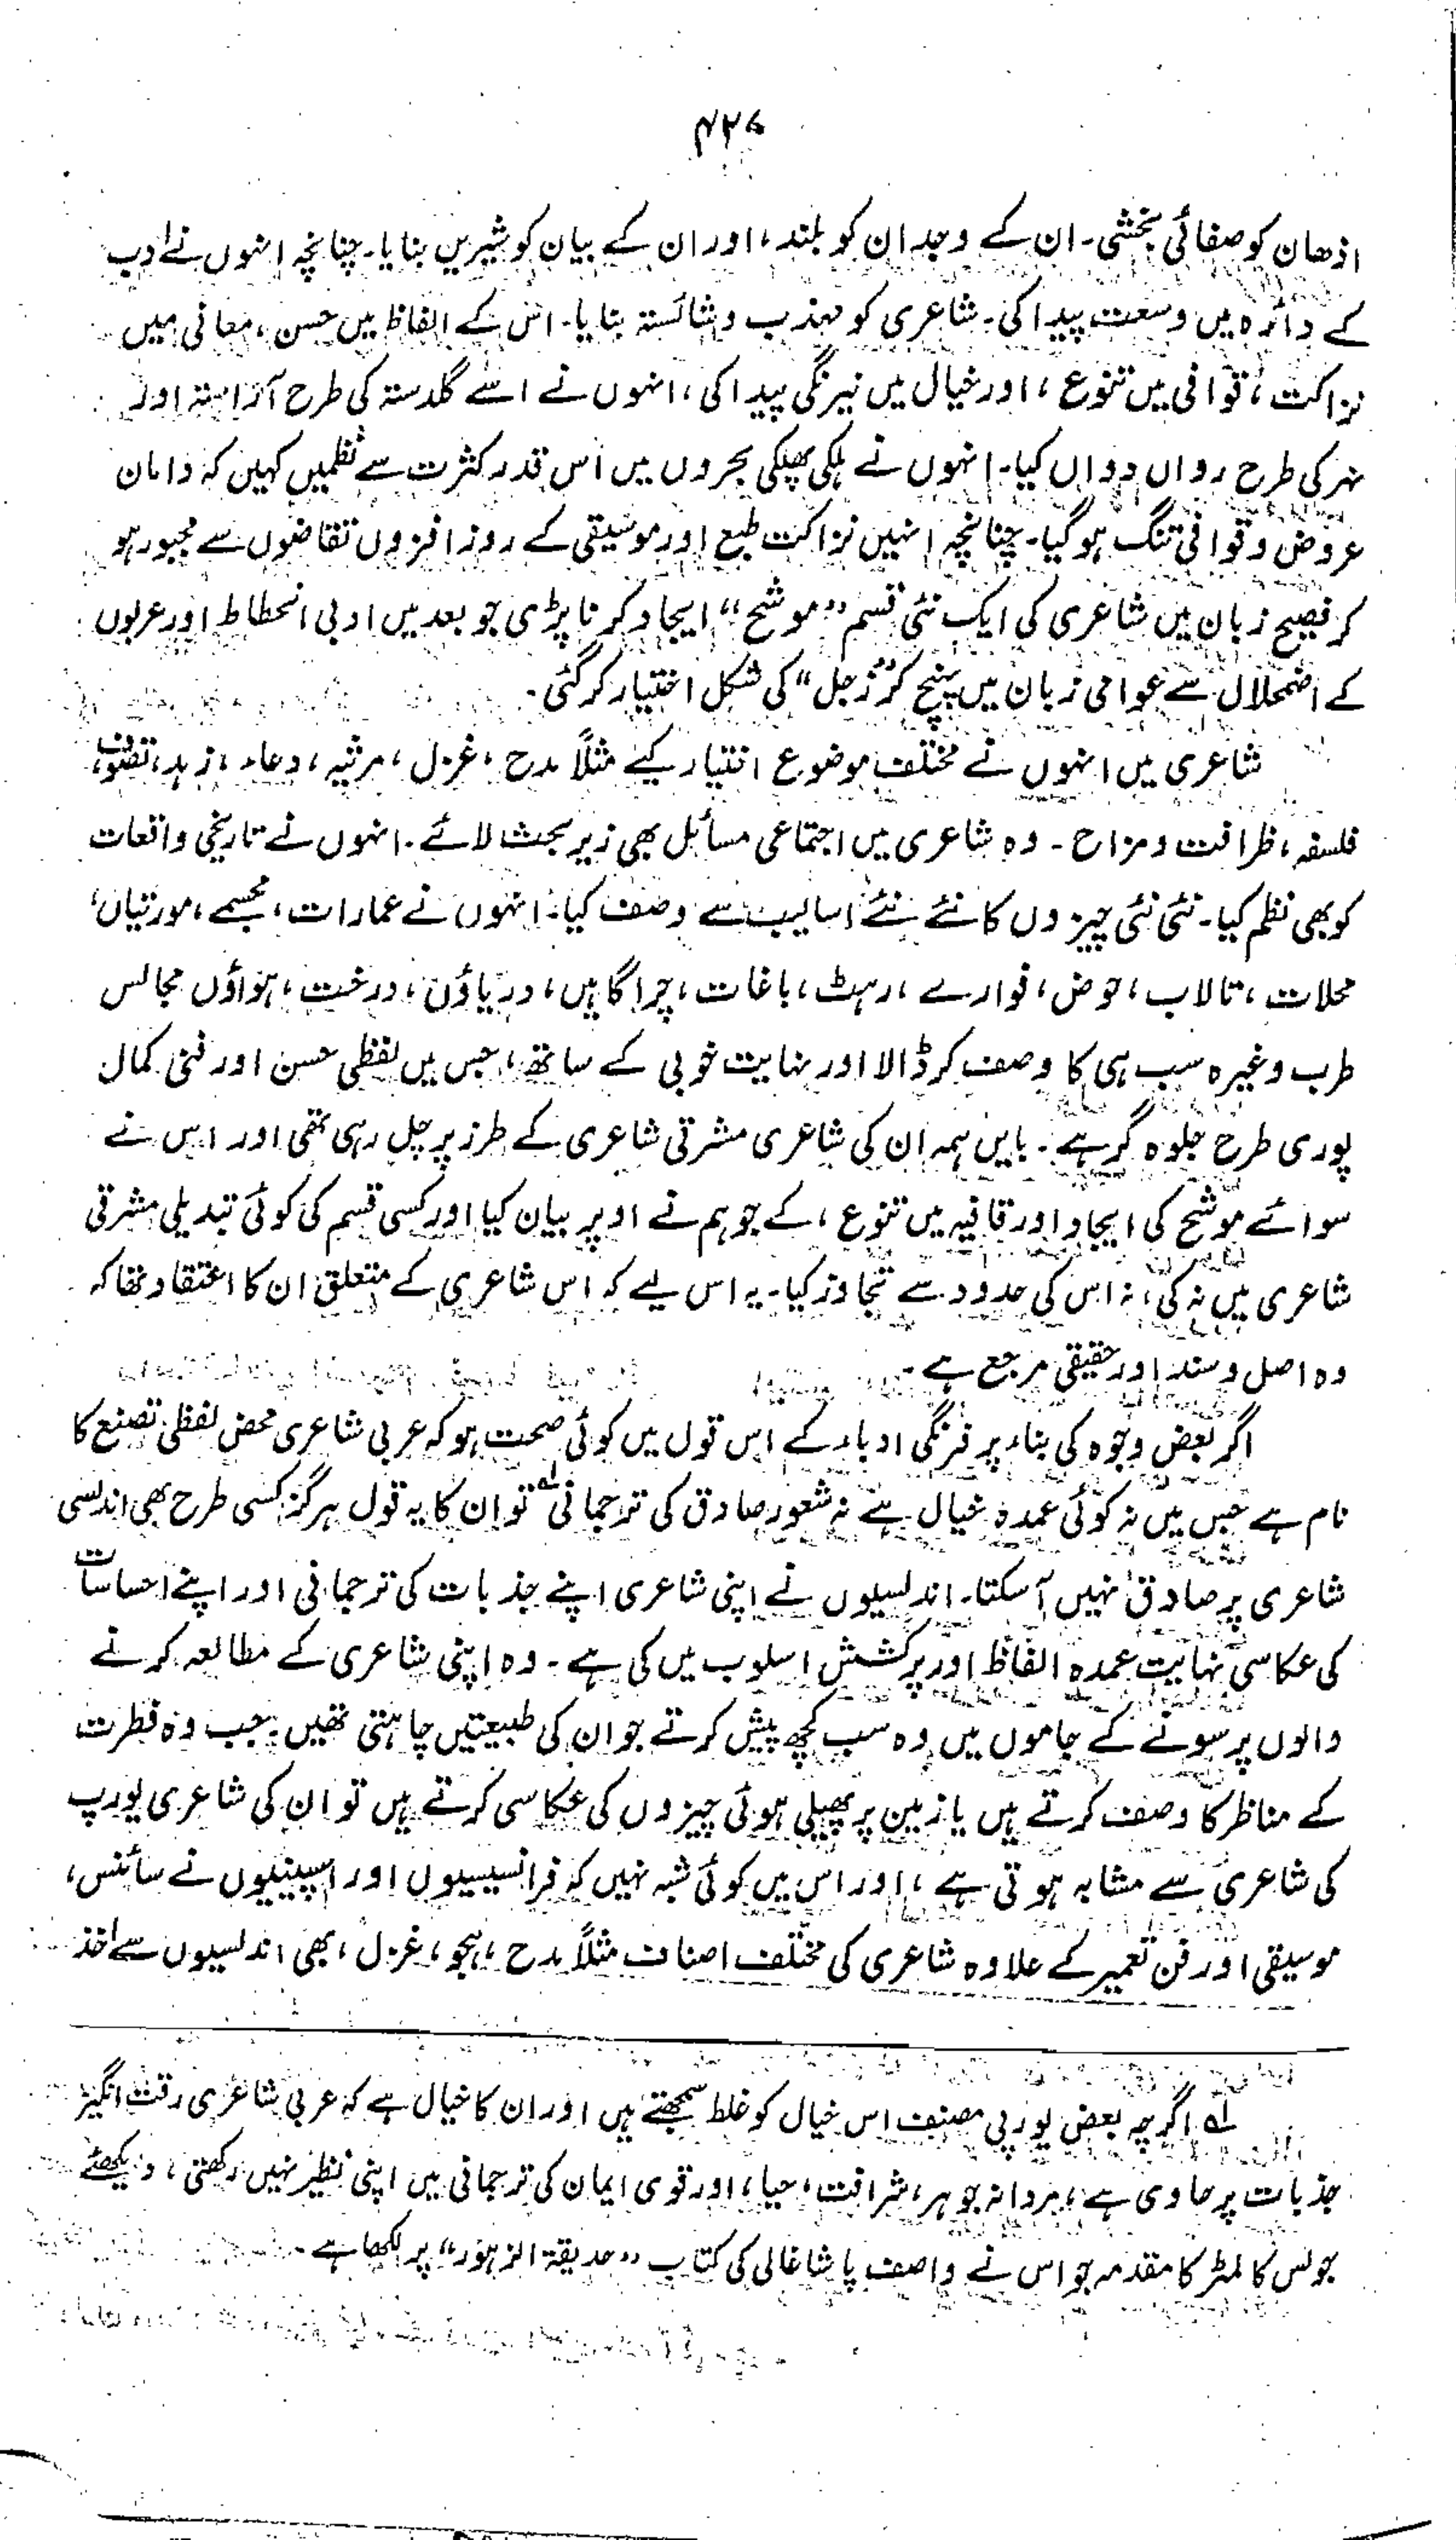 ۴۲۷
اذھان کو صفائی بخشی۔ ان کے وجدان کو بلند، اور ان کے بیان کو شیریں بنایا۔ چنانچہ انہوں نے ادب
کے دائرہ میں وسعت پیدا کی۔ شاعری کو مہذب و شائستہ بنایا۔ اس کے الفاظ میں حسن، معانی میں
نزاکت، قوافی میں تنوع، اور خیال میں نیرنگی پیدا کی، انہوں نے اسے گلدستہ کی طرح آراستہ اور
نہر کی طرح رواں دواں کیا۔ انہوں نے ہلکی پھلکی بحروں میں اس قدر کثرت سے نظمیں کہیں کہ دامان
عروض و قوافی تنگ ہو گیا۔ چنانچہ انہیں نزاکت طبع اور موسیقی کے روز افزوں تقاضوں سے مجبور ہو
کر فصیح زبان میں شاعری کی ایک نئی قسم ”موشح“ ایجاد کرنا پڑی جو بعد میں ادبی انحطاط اور عربوں
کے اضمحلال سے عوامی زبان میں پہنچ کر ”زجل“ کی شکل اختیار کر گئی۔
شاعری میں انہوں نے مختلف موضوع اختیار کیے مثلاً مدح، غزل، مرثیہ، دعاء، زہد، تصوف،
فلسفہ، ظرافت و مزاح۔ وہ شاعری میں اجتماعی مسائل بھی زیر بحث لائے۔ انہوں نے تاریخی واقعات
کو بھی نظم کیا۔ نئی نئی چیزوں کا نئے نئے اسالیب سے وصف کیا۔ انہوں نے عمارات، مجسمے، مورتیاں،
محلات، تالاب، حوض، فوارے، رہٹ، باغات، چراگاہیں، دریاؤں، درخت، ہواؤں مجالس
طرب وغیرہ سب ہی کا وصف کر ڈالا اور نہایت خوبی کے ساتھ، جس میں لفظی حسن اور فنی کمال
پوری طرح جلوہ گر ہے۔ بایں ہمہ ان کی شاعری مشرقی شاعری کے طرز پر چل رہی تھی اور اس نے
سوائے موشح کی ایجاد اور قافیہ میں تنوع، کے جو ہم نے اوپر بیان کیا اور کسی قسم کی کوئی تبدیلی مشرقی
شاعری میں نہ کی، نہ اس کی حدود سے تجاوز کیا۔ یہ اس لیے کہ اس شاعری کے متعلق ان کا اعتقاد تھا کہ
وہ اصل و سند اور حقیقی مرجع ہے۔
اگر بعض وجوہ کی بناء پر فرنگی ادباء کے اس قول میں کوئی صحت ہو کہ عربی شاعری محض لفظی تصنع کا
نام ہے جس میں نہ کوئی عمدہ خیال ہے نہ شعور صادق کی ترجمانی لہ تو ان کا یہ قول ہرگز کسی طرح بھی اندلسی
شاعری پر صادق نہیں آ سکتا۔ اندلسیوں نے اپنی شاعری اپنے جذبات کی ترجمانی اور اپنے احساسات
کی عکاسی نہایت عمدہ الفاظ اور پرکشش اسلوب میں کی ہے۔ وہ اپنی شاعری کے مطالعہ کرنے
والوں پر سونے کے جاموں میں وہ سب کچھ پیش کرتے جو ان کی طبیعتیں چاہتی تھیں۔ جب وہ فطرت
کے مناظر کا وصف کرتے ہیں یا زمین پر پھیلی ہوئی چیزوں کی عکاسی کرتے ہیں تو ان کی شاعری یورپ
کی شاعری سے مشابہ ہوتی ہے، اور اس میں کوئی شبہ نہیں کہ فرانسیسیوں اور اسپینیوں نے سائنس،
موسیقی اور فن تعمیر کے علاوہ شاعری کی مختلف اصناف مثلاً مدح، ہجو، غزل، بھی اندلسیوں سے اخذ
لہ اگرچہ بعض یورپی مصنف اس خیال کو غلط سمجھتے ہیں اور ان کا خیال ہے کہ عربی شاعری رقت انگیز
جذبات پر حاوی ہے، مردانہ جوہر، شرافت، حیا، اور قوی ایمان کی ترجمانی میں اپنی نظیر نہیں رکھتی، دیکھئے
جولس کالمٹر کا مقدمہ جو اس نے واصف پاشا غالی کی کتاب ”حدیقۃ الزہور“ پر لکھا ہے۔